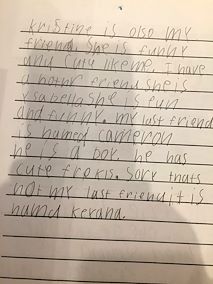 kristine is also my
friend. she is funny
and cute like me. I have
a nothr friend she is
ysabella she is fun
and funny. my last friend
is named cameron
he is a boy. he has
cute frekls. Sory thats
not my last friend it is
namd keyana.